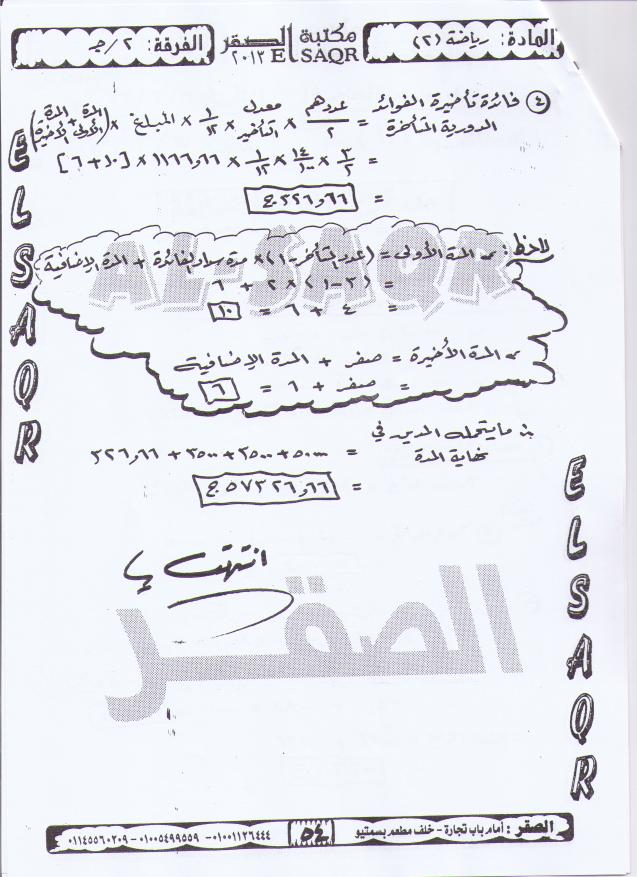 المادة: رياضة (٢)
مكتبة الصقر
٢٠١٣ EL SAQR
الفرقة: ٢/ج
④ فائدة تأخيرة الفوائد الدورية المتأخرة = عددهم/٢ × معدل التأخير × ١/١٢ × المبلغ × (المدة الأولى + المدة الأخيرة)
= ٣/٢ × ١٤/١٠٠ × ١/١٢ × ١١٦٦و٦٦ × [١٠ + ٦]
= ٣٢٦و٦٦ ج
AL-SAQR
لاحظ: المدة الأولى = (عدد المتأخر - ١) × مدة سداد الفائدة + المدة الإضافية
= (٣ - ١) × ٢ + ٦
= ٤ + ٦ = ١٠
المدة الأخيرة = صفر + المدة الإضافية
= صفر + ٦ = ٦
∴ ما يتحمله المدين في نهاية المدة = ٥٠٠٠٠ + ٣٥٠٠ + ٣٥٠٠ + ٣٢٦و٦٦
= ٥٧٣٢٦و٦٦ ج
انتهت
الصقر
ELSAQR
ELSAQR
الصقر: أمام باب تجارة - خلف مطعم بسمتيو
٥٤
٠١٠٠١١٢٦٤٤٤ - ٠١٠٠٥٤٩٩٥٥٩ - ٠١١٤٥٥٦٠٢٠٩